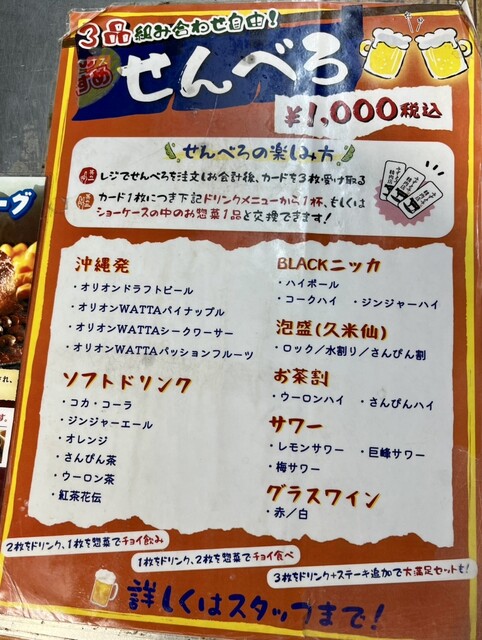 3品組み合わせ自由!
せんべろ
¥1,000税込
せんべろの楽しみ方
レジでせんべろを注文しお会計後、カードを3枚受け取る
カード1枚につき下記ドリンクメニューから1杯、もしくは
ショーケースの中のお惣菜1品と交換できます!
沖縄発
・オリオンドラフトビール
・オリオンWATTAパイナップル
・オリオンWATTAシークワーサー
・オリオンWATTAパッションフルーツ
ソフトドリンク
・コカ・コーラ
・ジンジャーエール
・オレンジ
・さんぴん茶
・ウーロン茶
・紅茶花伝
BLACKニッカ
・ハイボール
・コークハイ ・ジンジャーハイ
泡盛(久米仙)
・ロック/水割り/さんぴん割
お茶割
・ウーロンハイ ・さんぴんハイ
サワー
・レモンサワー ・巨峰サワー
・梅サワー
グラスワイン
・赤/白
2枚をドリンク、1枚を惣菜でチョイ飲み
1枚をドリンク、2枚を惣菜でチョイ食べ
3枚をドリンク+ステーキ追加で大満足セットも!
詳しくはスタッフまで!